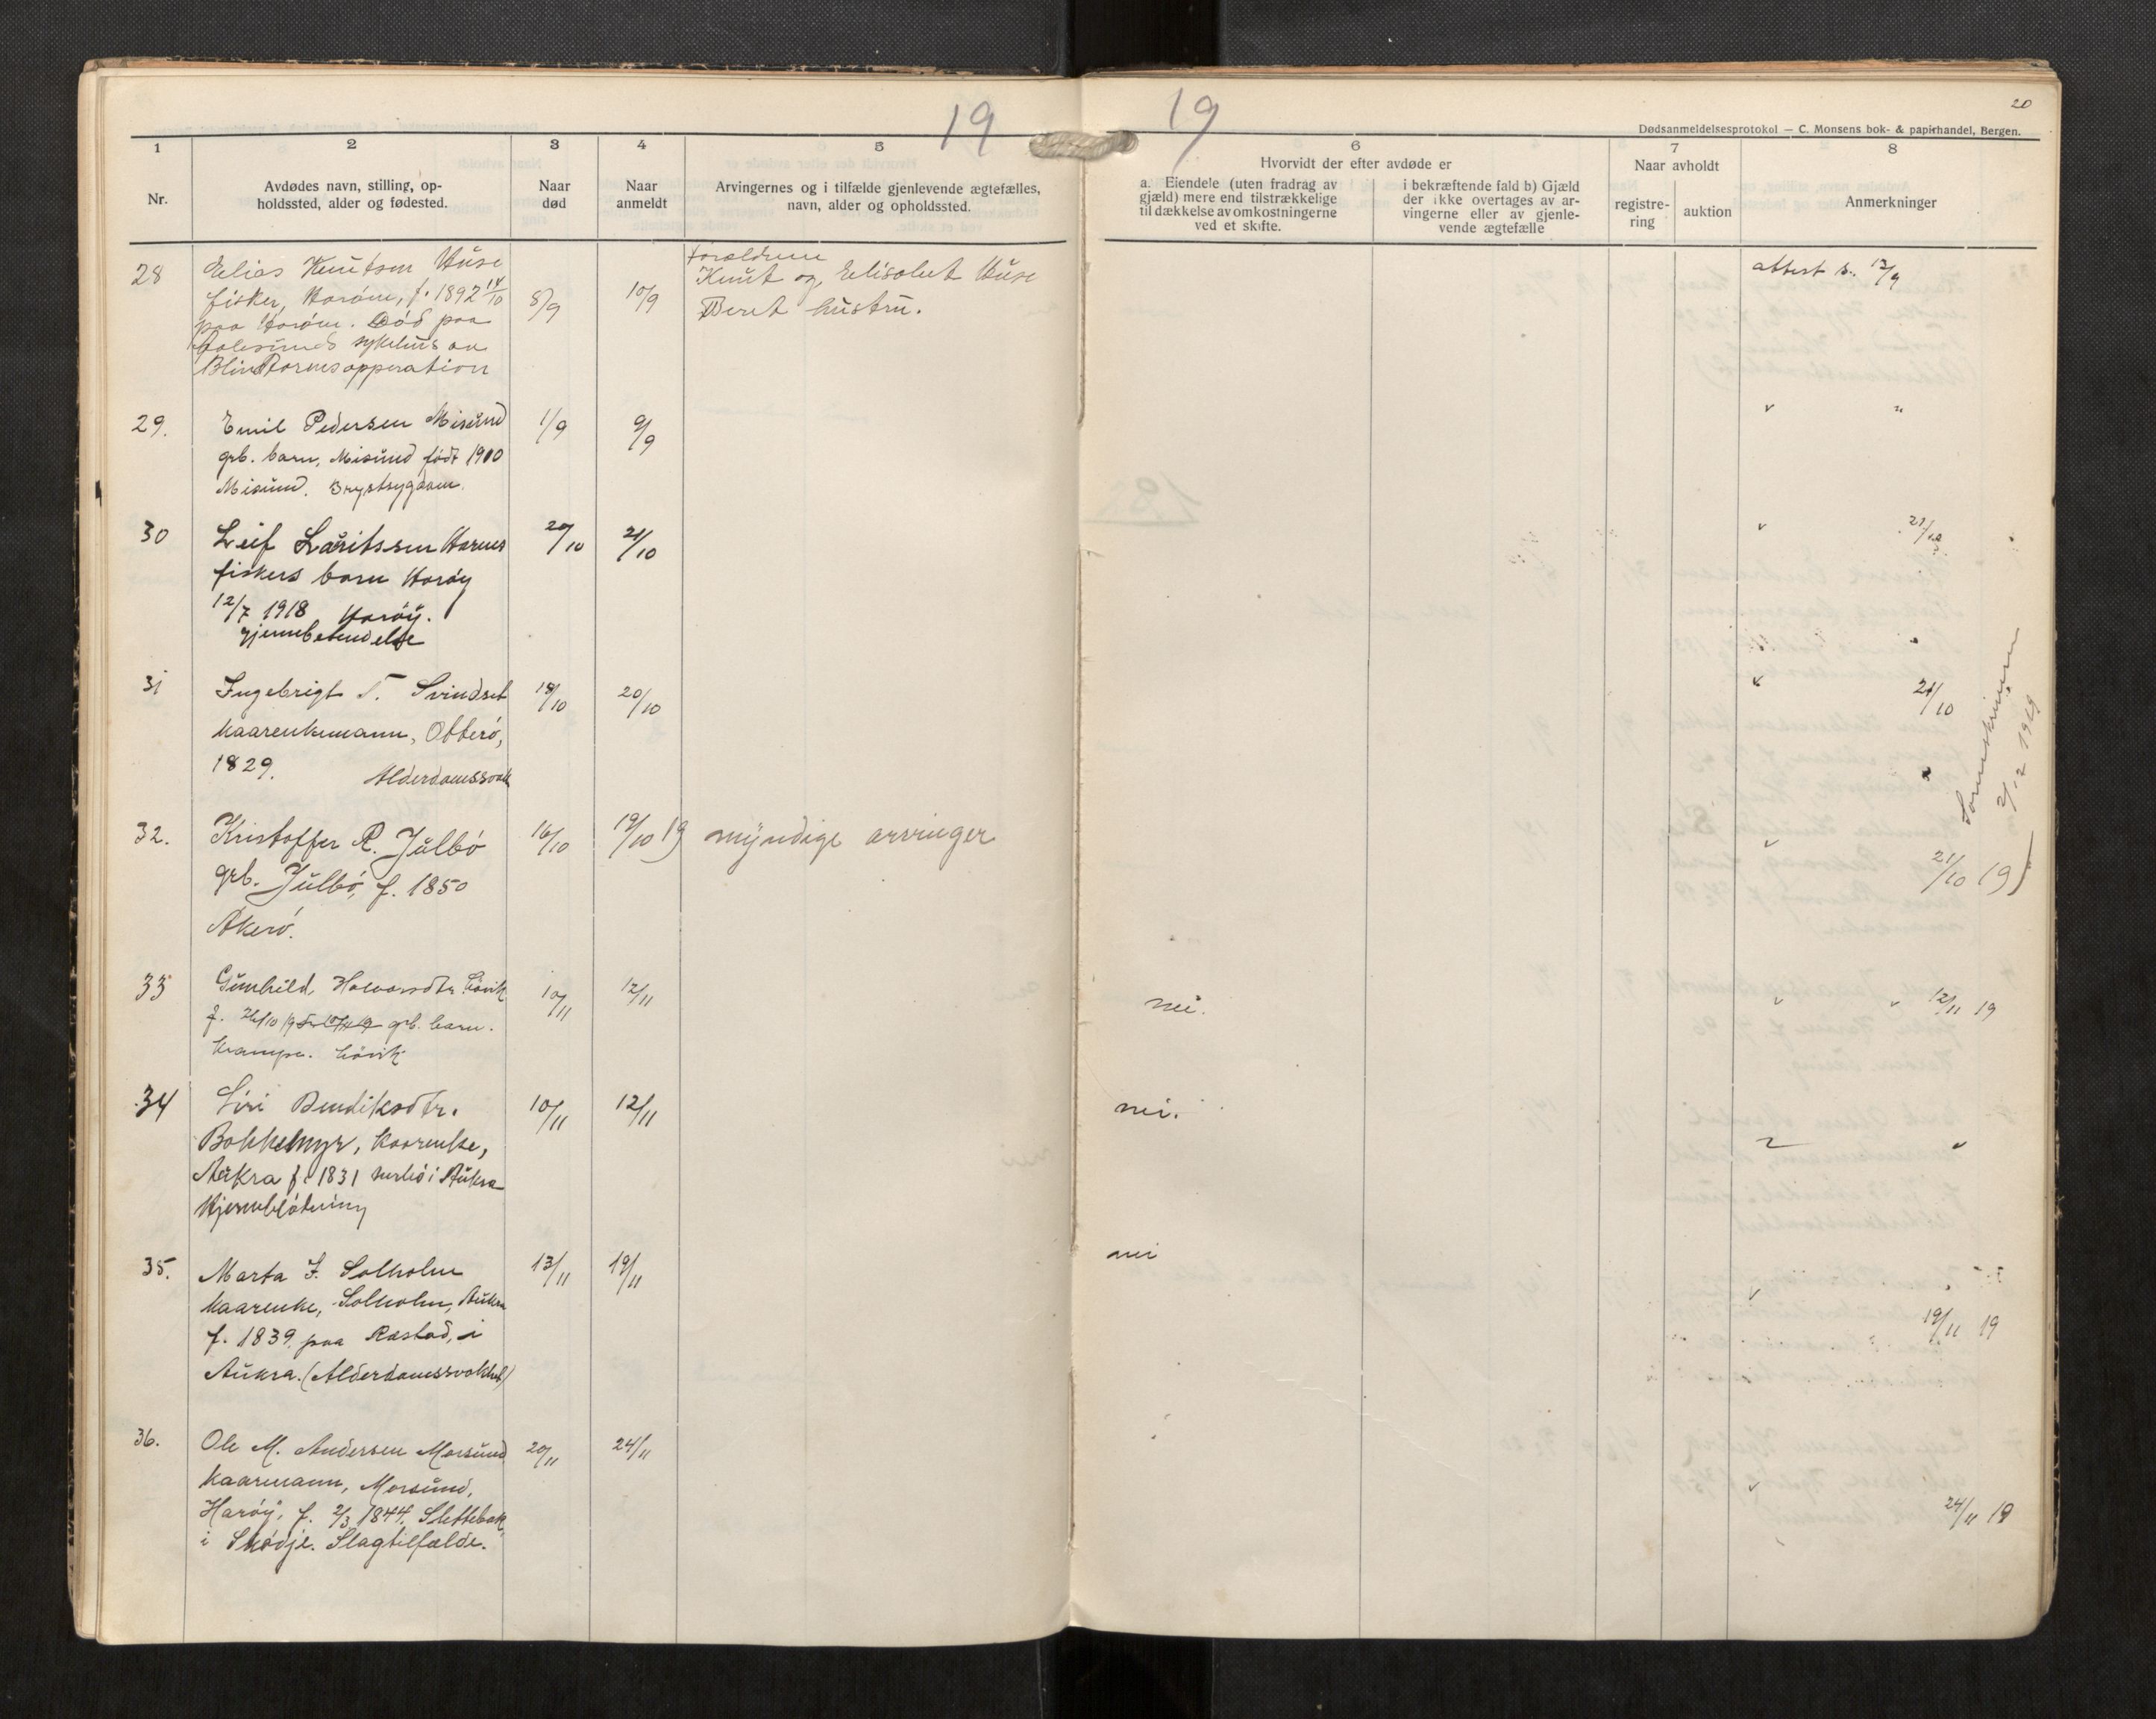 19
19
20
Dødsanmeldelsesprotokol — C. Monsens bok- & papirhandel, Bergen.
1 2 3 4 5 6 7 8
Nr.
Avdødes navn, stilling, op-
holdssted, alder og fødested.
Naar
død
Naar
anmeldt
Arvingernes og i tilfælde gjenlevende ægtefælles,
navn, alder og opholdssted.
Hvorvidt der efter avdøde er
a. Eiendele (uten fradrag av
gjæld) mere end tilstrækkelige
til dækkelse av omkostningerne
ved et skifte.
i bekræftende fald b) Gjæld
der ikke overtages av ar-
vingerne eller av gjenle-
vende ægtefælle
Naar avholdt
registre-
ring
auktion
Anmerkninger
28 Elias Knutsen Huse 8/9 10/9
fisker, Harøen, f. 1892 14/10
paa Harøen. Død paa
Aalesunds sykehus av
Blindtarmsopperation
forældrene
Knut og Elisabet Huse
Beret hustru.
attest s. 12/9
29. Emil Pedersen Misund 1/9 9/9
grb. barn, Misund født 1910
Misund. Brystsygdom.
30 Leif Lauritssen Harnes 20/10 21/10
fiskers barn Harøy
12/7 1918 Harøy.
Hjernebetendelse
31 Ingebrigt T. Svindset 18/10 20/10 21/10
kaarenkemann, Otterö,
1829. Alderdomssvak
32. Kristoffer R. Julbö 16/10 19/10 19 myndige arvinger 21/10 19
grb. Julbö, f. 1850
Akerö.
Sorenskriveren
2/12 1919
33 Gunhild Halvorsdtr. Lövik 10/11 12/11 nei. 12/11 19
f. 26/10 19 grb. barn.
krampe. Lövik
34 Siri Bendiksdtr. 10/11 12/11 nei.
Bakkemyr, kaarenke,
Aakra f. 1831 i Aukra
Hjerneblödning
35. Marta J. Solholm 13/11 19/11 nei 19/11 19
kaarenke, Solholm, Aukra
f. 1839 paa Rastad, i
Aukra. (Alderdomssvakhet)
36. Ole M. Andersen Morsund 20/11 24/11 24/11 19
kaarmann, Morsund,
Harøy, f. 2/3 1844. Slettebak
i Skodje. Slagtilfælde.